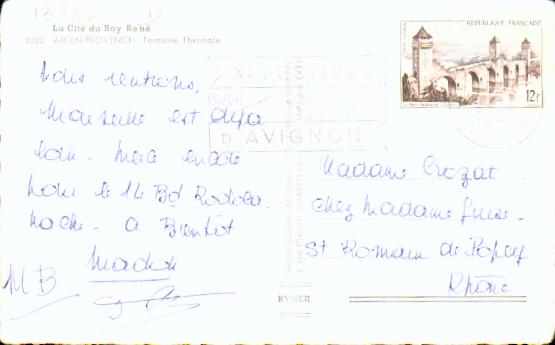 La Cité du Roy René
2020 AIX-EN-PROVENCE - Fontaine Thermale
Nous rentrons,
Marseille est déjà
loin. Merci encore
pour le 14 Bd Rodoca
nache. A Bientôt
Madon
MB
FESTIVAL
D'AVIGNON
REPUBLIQUE FRANÇAISE
12F
Madame Crozat
chez Madame
St Romain de Popey
Rhône
RYNER